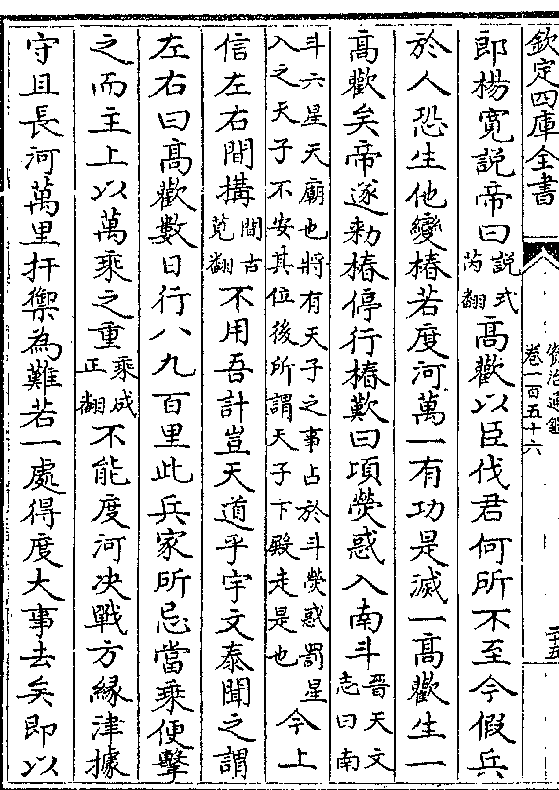 欽定四庫全書
資治通鑑
卷一百五十六
即楊寛説帝曰説式芮翻髙歡以臣伐君何所不至今假兵
於人恐生他變椿若度河萬一有功是滅一髙歡生一
髙歡矣帝遂勑椿停行椿歎曰項熒惑入南斗晋天文志曰南
斗六星天廟也將有天子之事占於斗熒惑罰星入之天子不安其位後所謂天子下殿走是也今上
信左右間搆間古莧翻不用吾計豈天道乎宇文泰聞之謂
左右曰髙歡數日行八九百里此兵家所忌當乗便擊
之而主上以萬乗之重乗成正翻不能度河决戰方縁津據
守且長河萬里扞禦為難若一處得度大事去矣即以